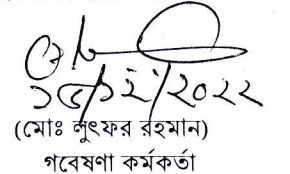 ২০২২
(মোঃ লুৎফর রহমান)
গবেষণা কর্মকর্তা